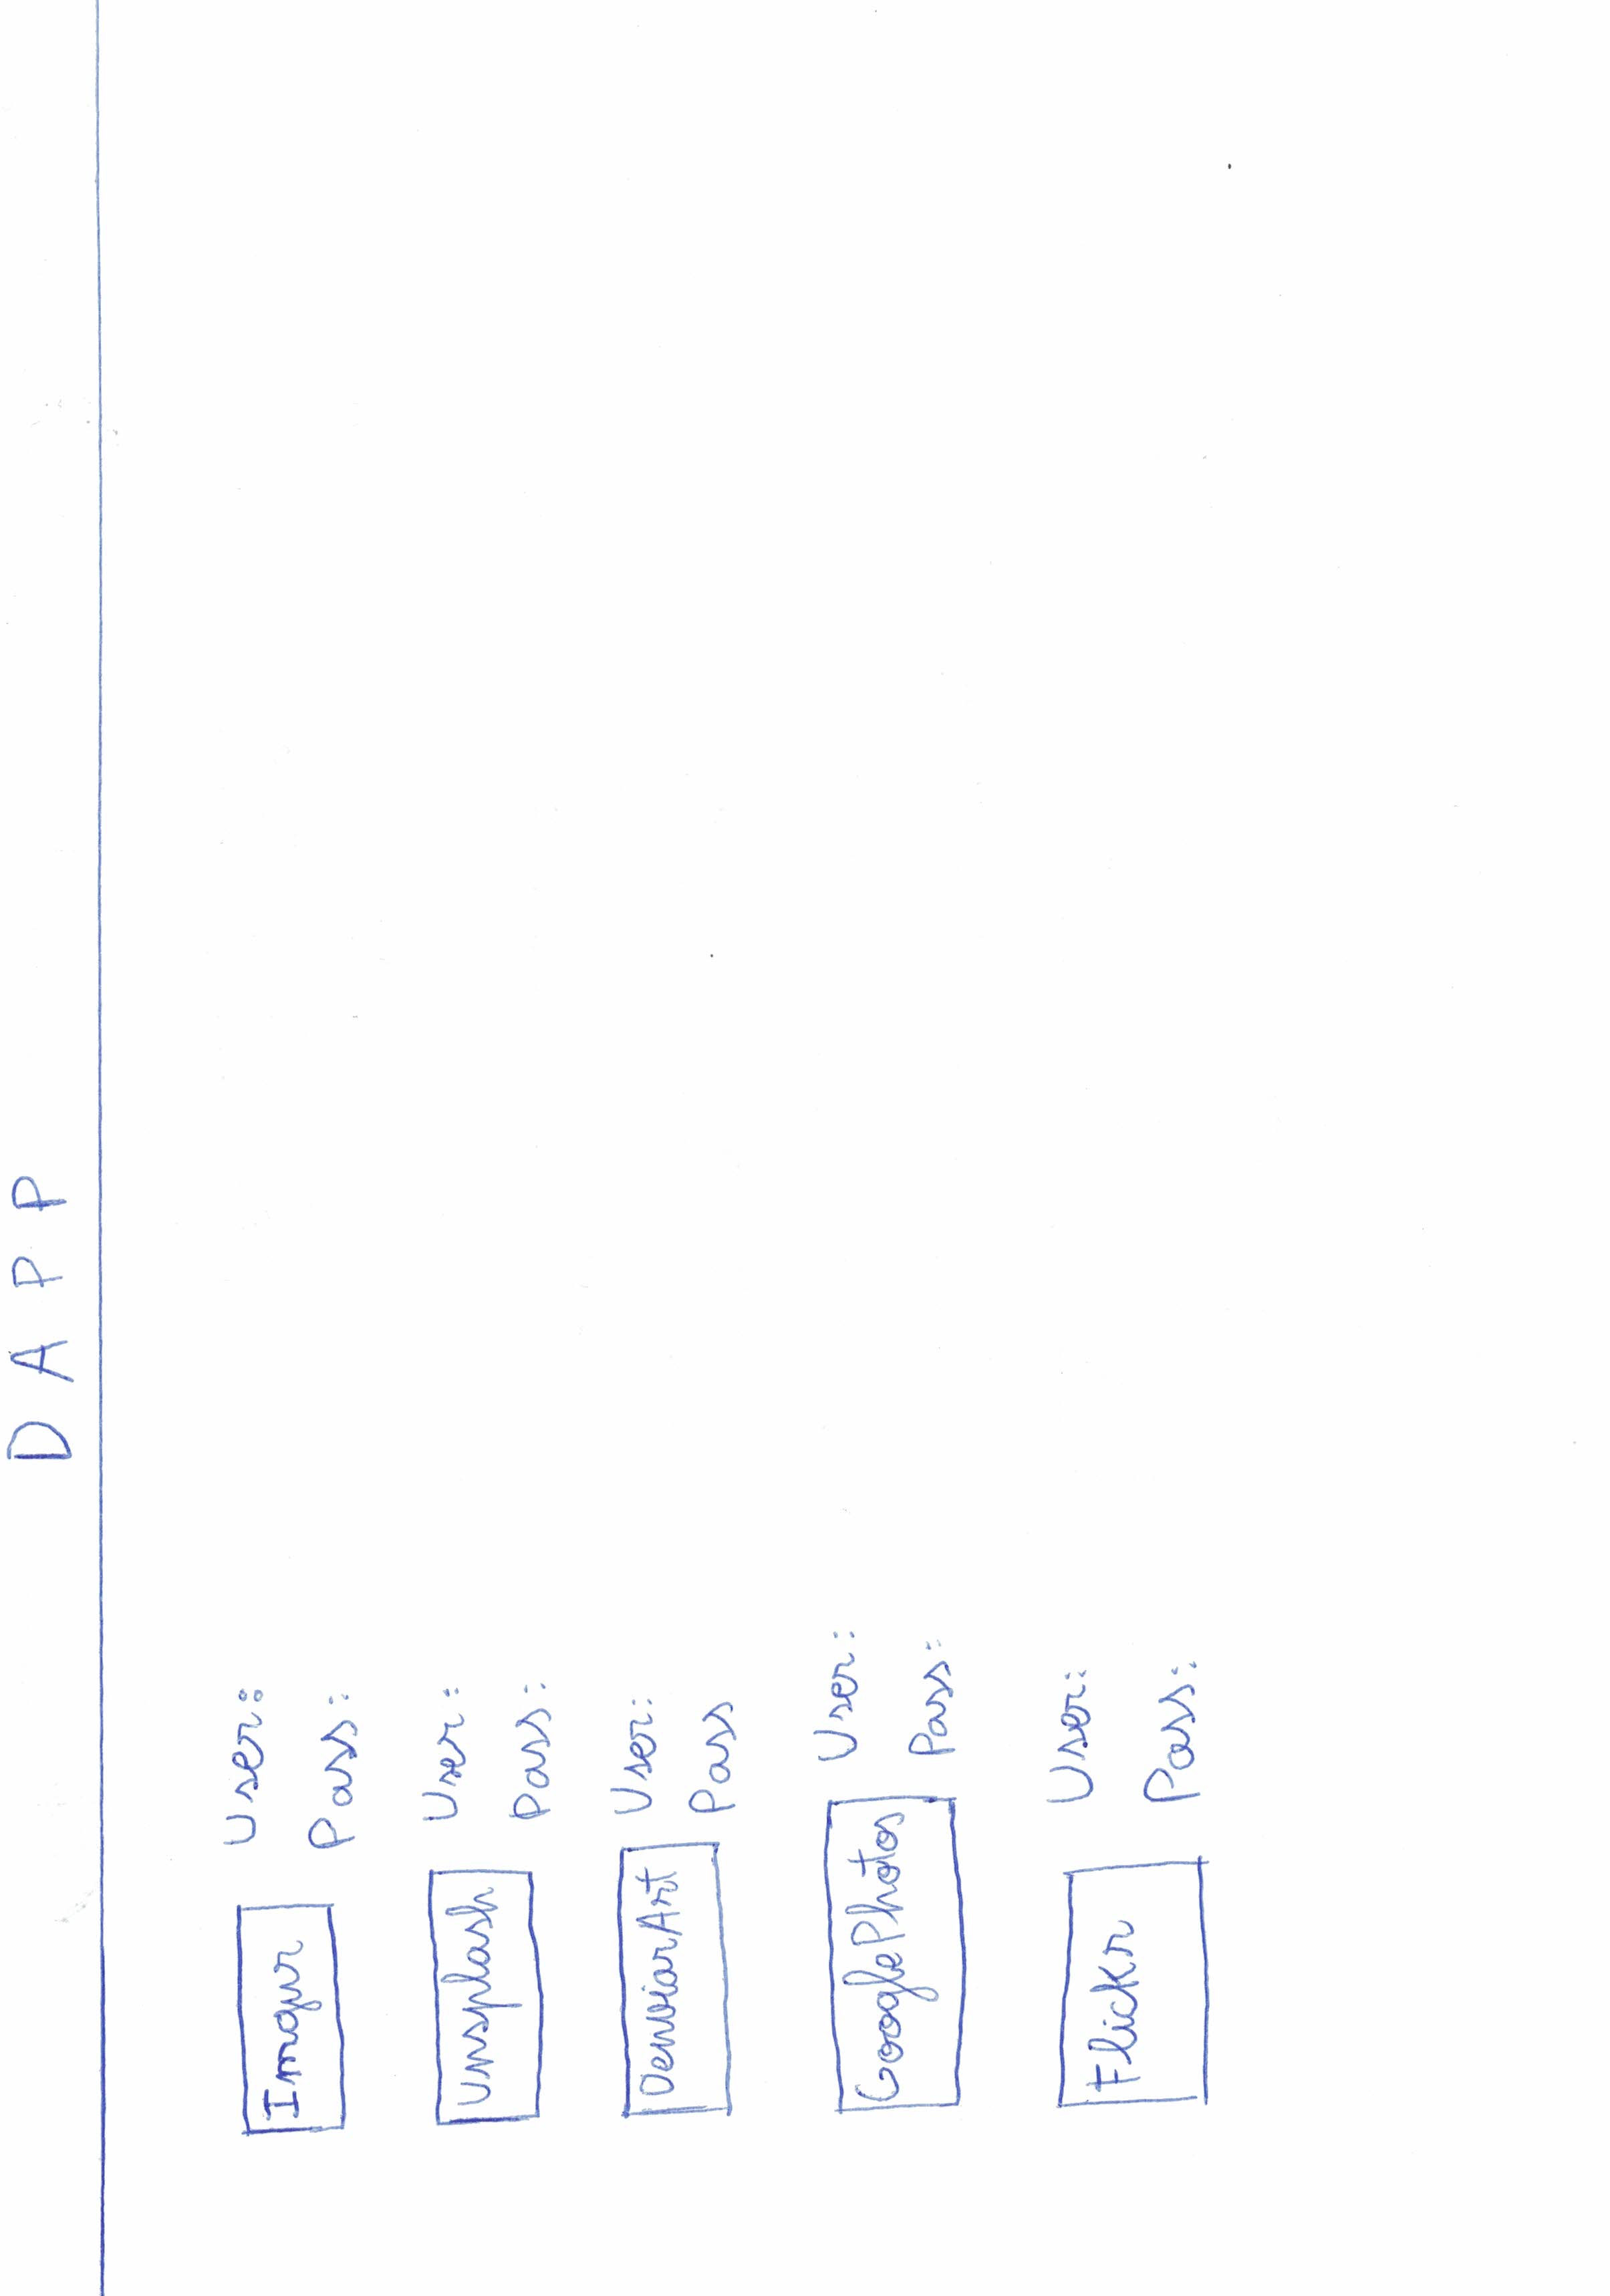 D A P P
Imgur
User:
Pass:
Unsplash
User:
Pass:
DenviarArt
User:
Pass
GooglePhotos
User:
Pass:
Flickr
User:
Pass: